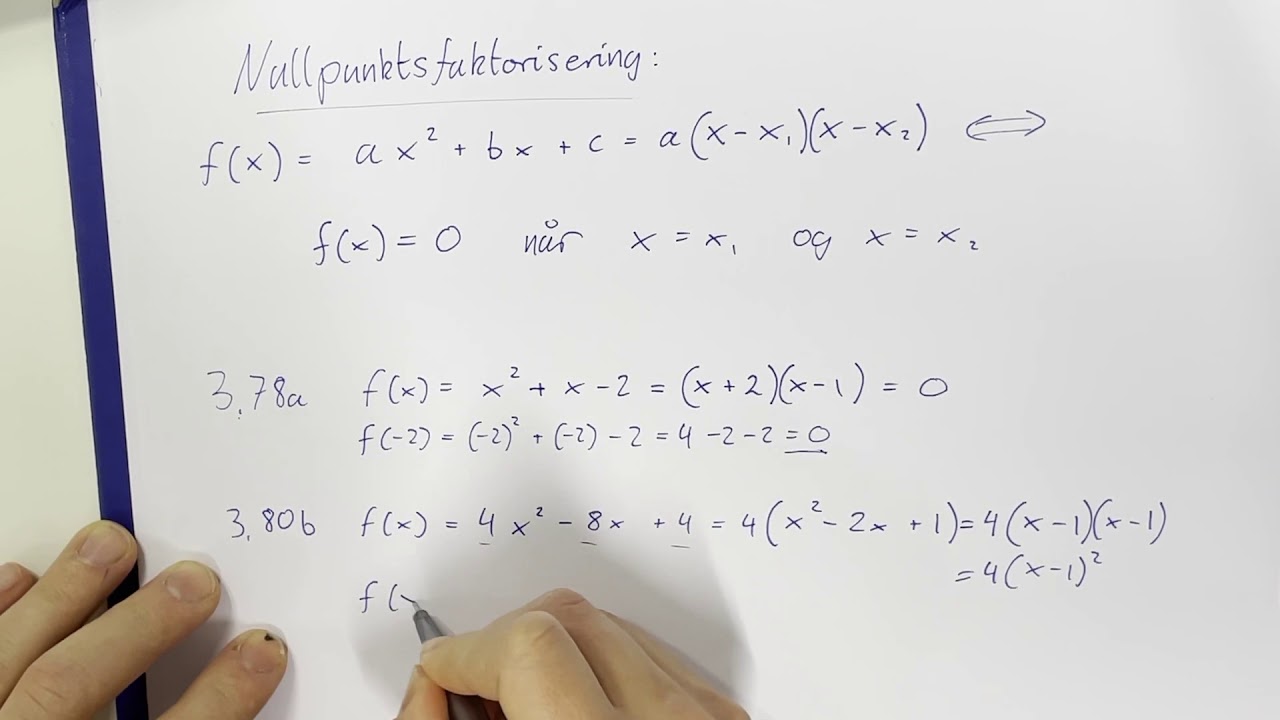 Nullpunktsfaktorisering:
f(x) = ax² + bx + c = a(x - x₁)(x - x₂) ⟺
f(x) = 0 når x = x₁ og x = x₂
3.78a f(x) = x² + x - 2 = (x + 2)(x - 1) = 0
f(-2) = (-2)² + (-2) - 2 = 4 - 2 - 2 = 0
3.80b f(x) = 4x² - 8x + 4 = 4(x² - 2x + 1) = 4(x - 1)(x - 1)
= 4(x - 1)²
f(